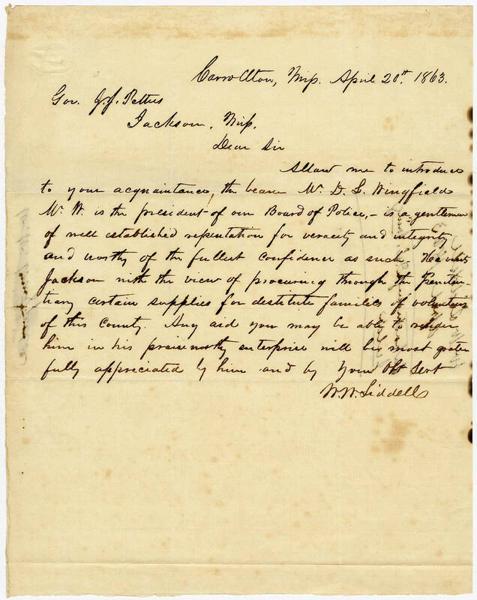 Carrollton, Miss. April 20th, 1863.
Gov. J.J. Pettus
Jackson, Miss.
Dear Sir
Allow me to introduce
to your acquaintance, the bearer Mr. D. L. Wingfield
Mr. W. is the president of our Board of Police, - is a gentleman
of well established reputation for veracity and integrity
and worthy of the fullest confidence as such. He visits
Jackson with the view of procuring through the Peniten-
tiary certain supplies for destitute families of volunteers
of this County. Any aid you may be able to render
him in his praiseworthy enterprise will be most grate
fully appreciated by him and by Your Obt Servt
W.W. Liddell